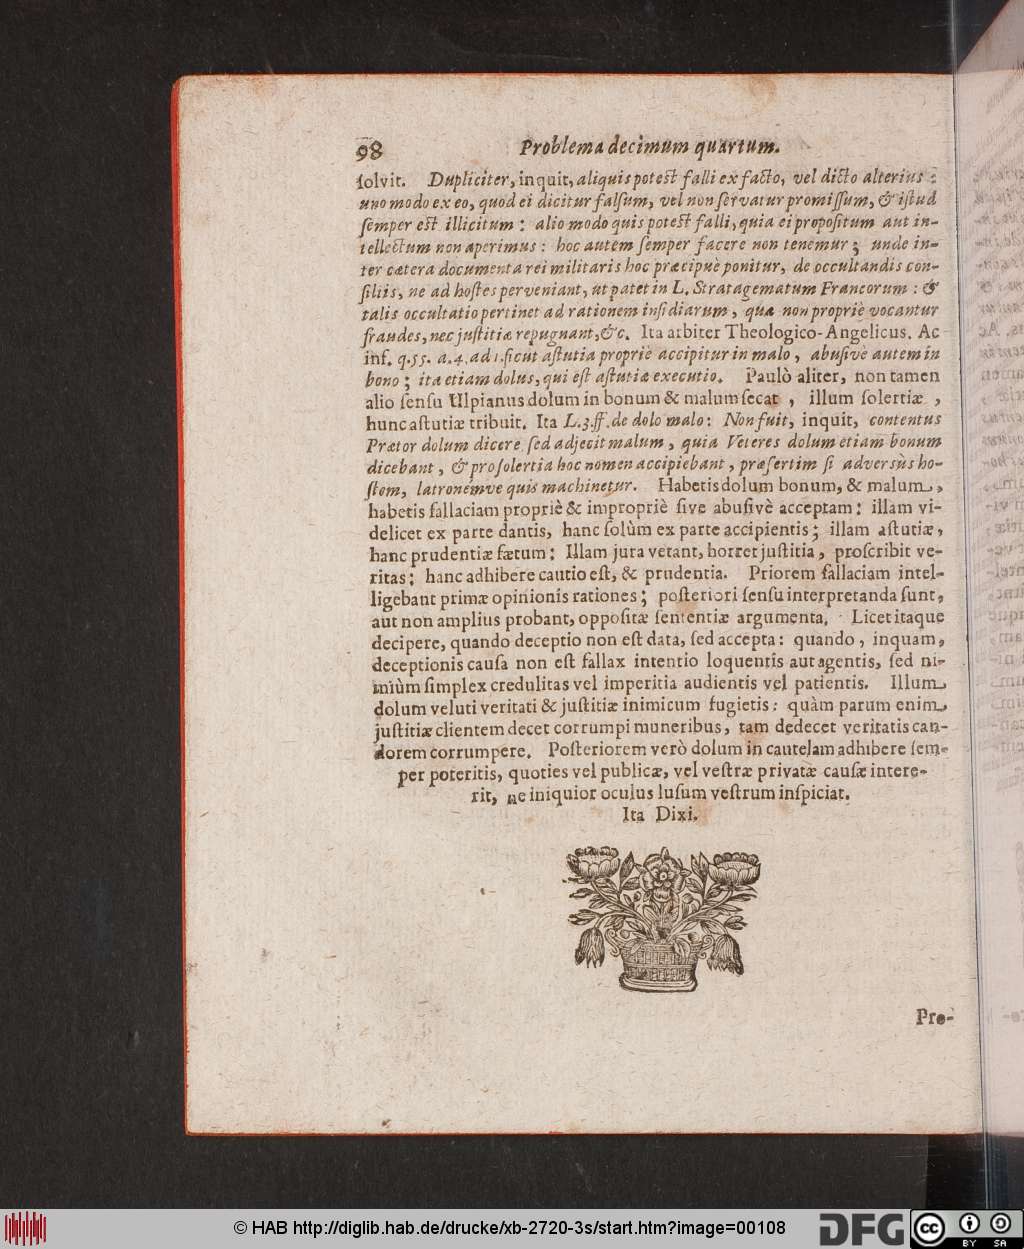 98 Problema decimum quartum.
solvit. Dupliciter, inquit, aliquis potest falli ex facto, vel dicto alterius:
uno modo ex eo, quod ei dicitur falsum, vel non servatur promissum, & istud
semper est illicitum: alio modo quis potest falli, quia ei propositum aut in-
tellectum non aperimus: hoc autem semper facere non tenemur; unde in-
ter cætera documenta rei militaris hoc præcipuè ponitur, de occultandis con-
siliis, ne ad hostes perveniant, ut patet in L. Stratagematum Francorum: &
talis occultatio pertinet ad rationem insidiarum, quæ non propriè vocantur
fraudes, nec justitiæ repugnant, &c. Ita arbiter Theologico-Angelicus. Ac
inf. q.55. a.4. ad 1. sicut astutia propriè accipitur in malo, abusivè autem in
bono; ita etiam dolus, qui est astutiæ executio. Paulò aliter, non tamen
alio sensu Ulpianus dolum in bonum & malum secat, illum solertiæ,
hunc astutiæ tribuit. Ita L.3. ff. de dolo malo: Non fuit, inquit, contentus
Prætor dolum dicere sed adjecit malum, quia Veteres dolum etiam bonum
dicebant, & pro solertia hoc nomen accipiebant, præsertim si adversùs ho-
stem, latronémve quis machinetur. Habetis dolum bonum, & malum,
habetis fallaciam propriè & impropriè sive abusivè acceptam: illam vi-
delicet ex parte dantis, hanc solùm ex parte accipientis; illam astutiæ,
hanc prudentiæ fætum: Illam jura vetant, horret justitia, proscribit ve-
ritas: hanc adhibere cautio est, & prudentia. Priorem fallaciam intel-
ligebant primæ opinionis rationes; posteriori sensu interpretanda sunt,
aut non amplius probant, oppositæ sententiæ argumenta. Licet itaque
decipere, quando deceptio non est data, sed accepta: quando, inquam,
deceptionis causa non est fallax intentio loquentis aut agentis, sed ni-
miùm simplex credulitas vel imperitia audientis vel patientis. Illum
dolum veluti veritati & justitiæ inimicum fugietis: quàm parum enim
justitiæ clientem decet corrumpi muneribus, tam dedecet veritatis can-
dorem corrumpere. Posteriorem verò dolum in cautelam adhibere sem-
per poteritis, quoties vel publicæ, vel vestræ privatæ causæ intere-
rit, ne iniquior oculus lusum vestrum inspiciat.
Ita Dixi.
Pre-
© HAB http://diglib.hab.de/drucke/xb-2720-3s/start.htm?image=00108
DFG
cc BY SA